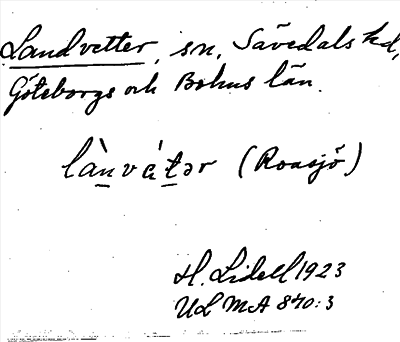 Landvetter, sn, Sävedals hd,
Göteborgs och Bohus län.
lànvátər (Roasjö)
H. Lidell 1923
ULMA 840:3